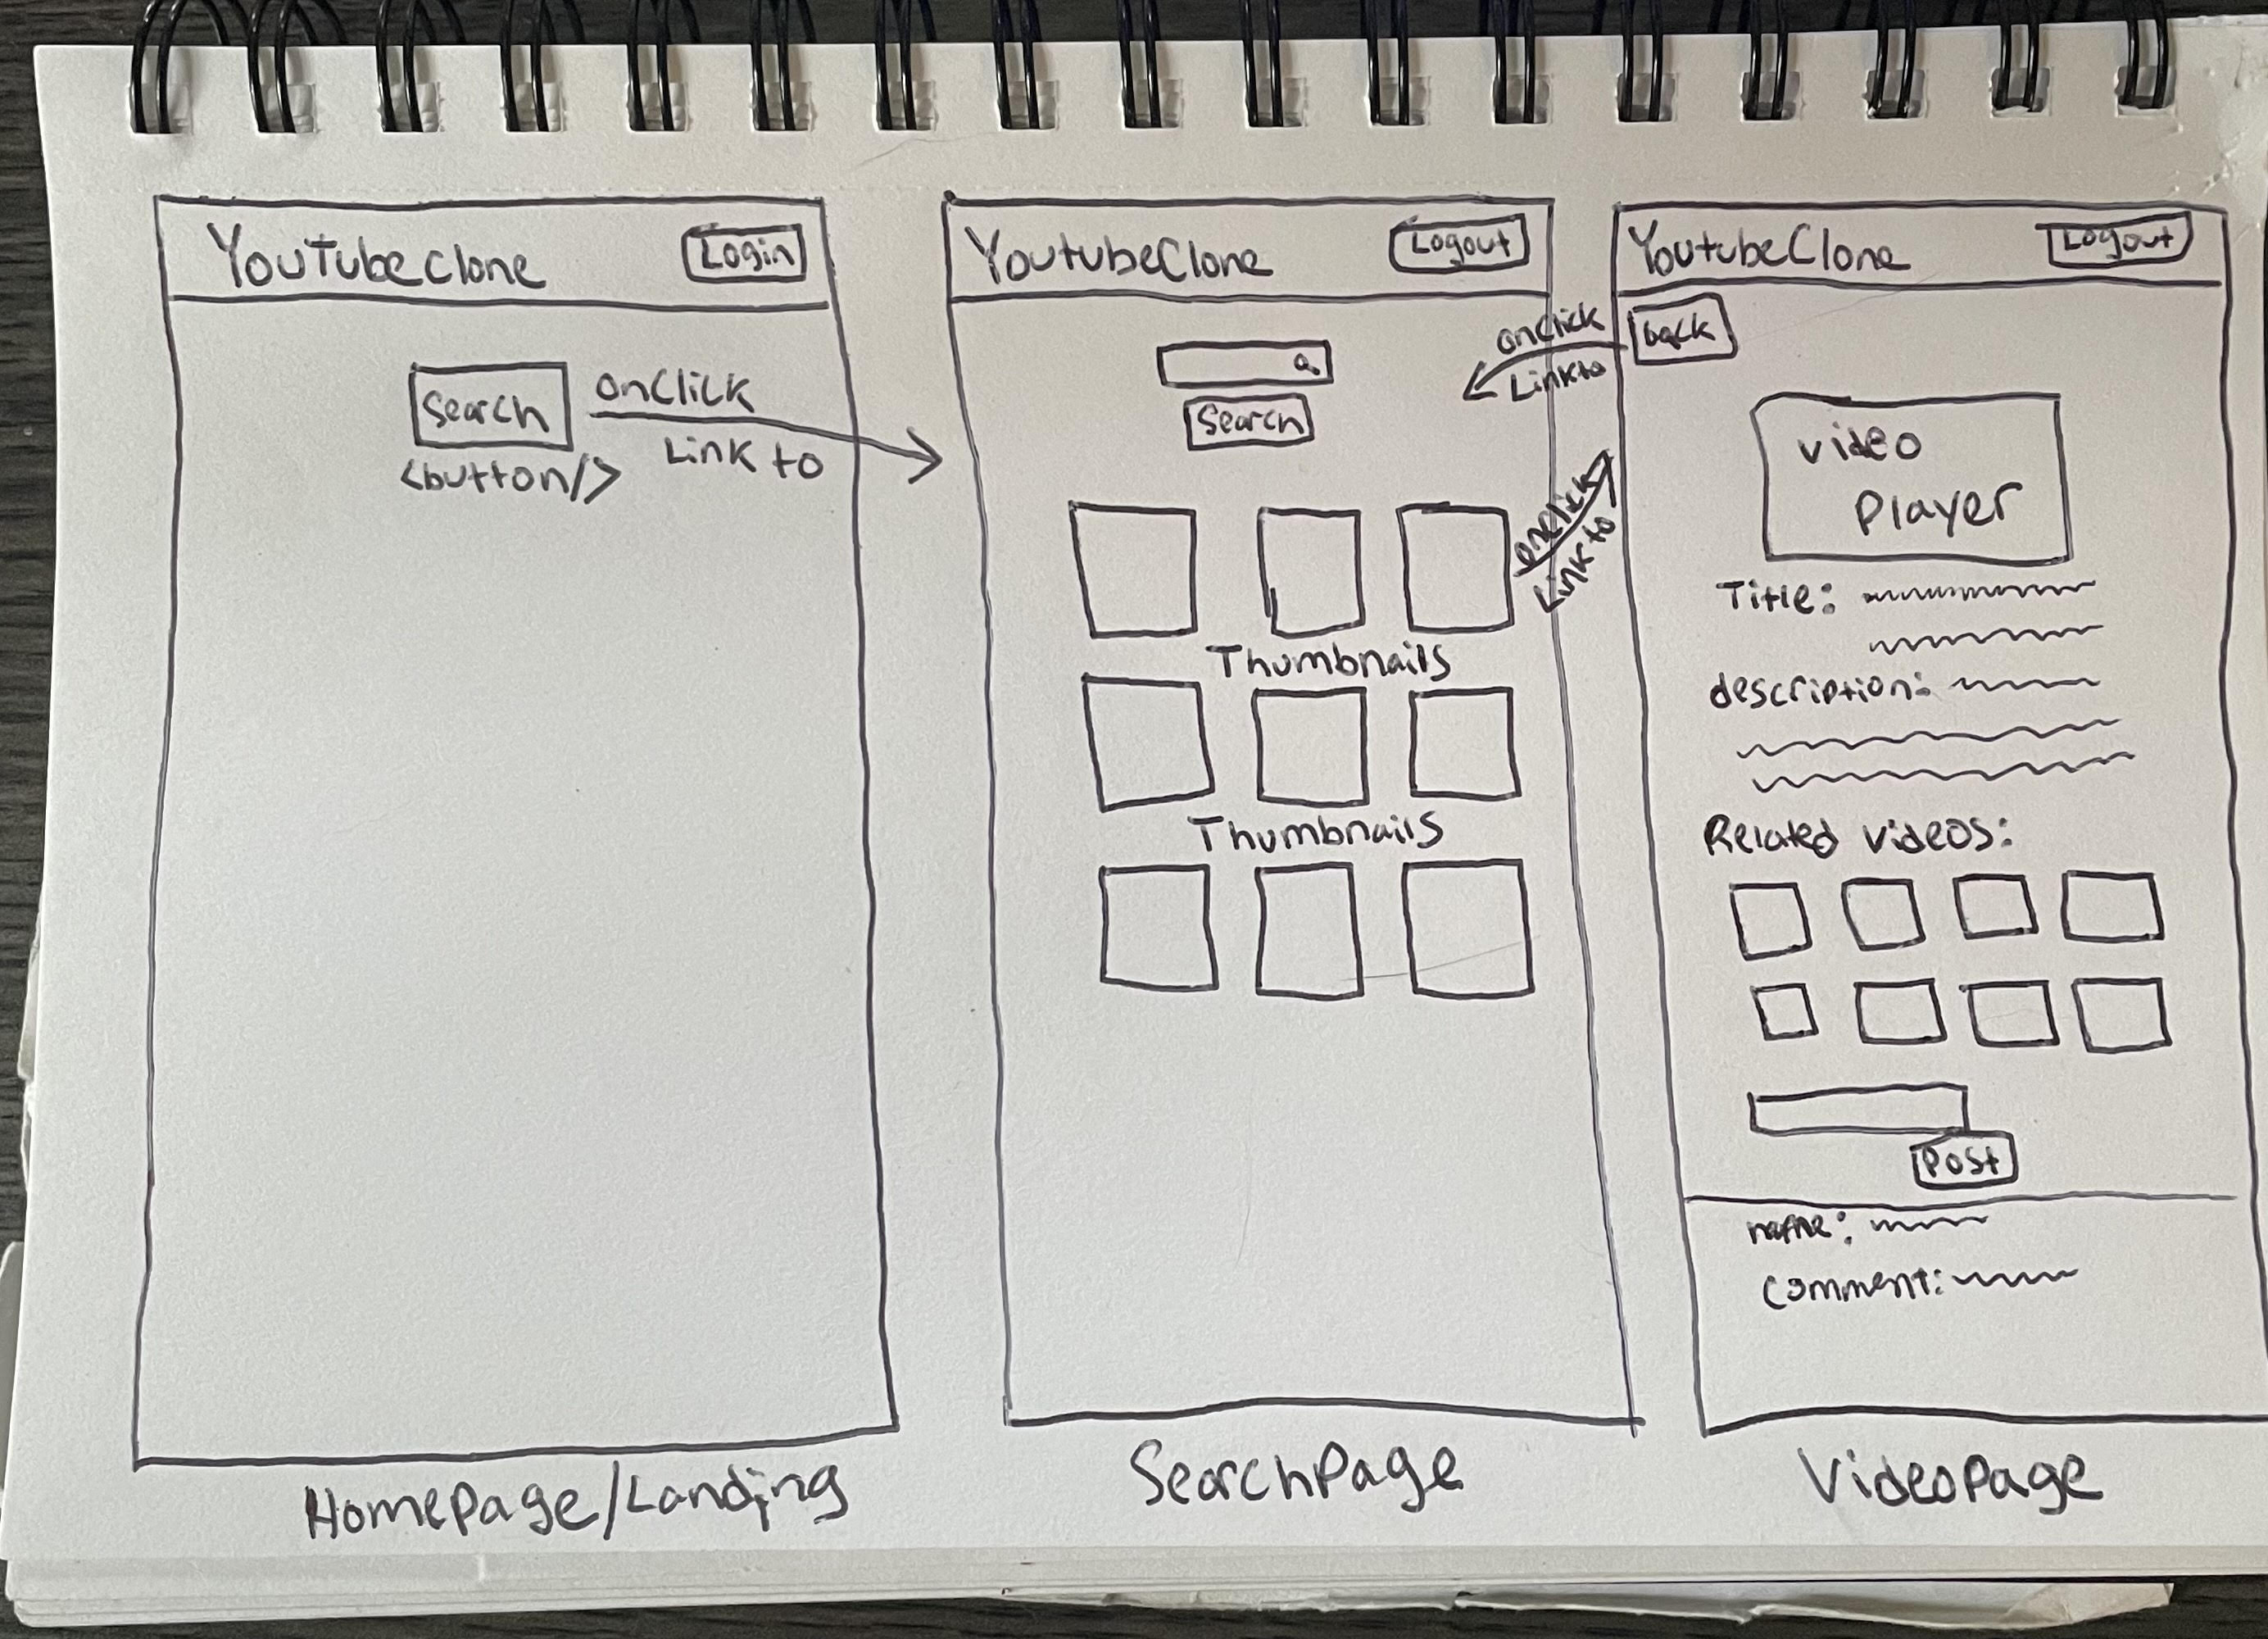 YouTubeClone
Login
Search
<button/>
onClick
Link to
HomePage/Landing
YoutubeClone
Logout
Search
Thumbnails
Thumbnails
onClick
Link to
SearchPage
YoutubeClone
Logout
back
onClick
Link to
Video
Player
Title:
description:
Related Videos:
Post
name:
Comment:
VideoPage